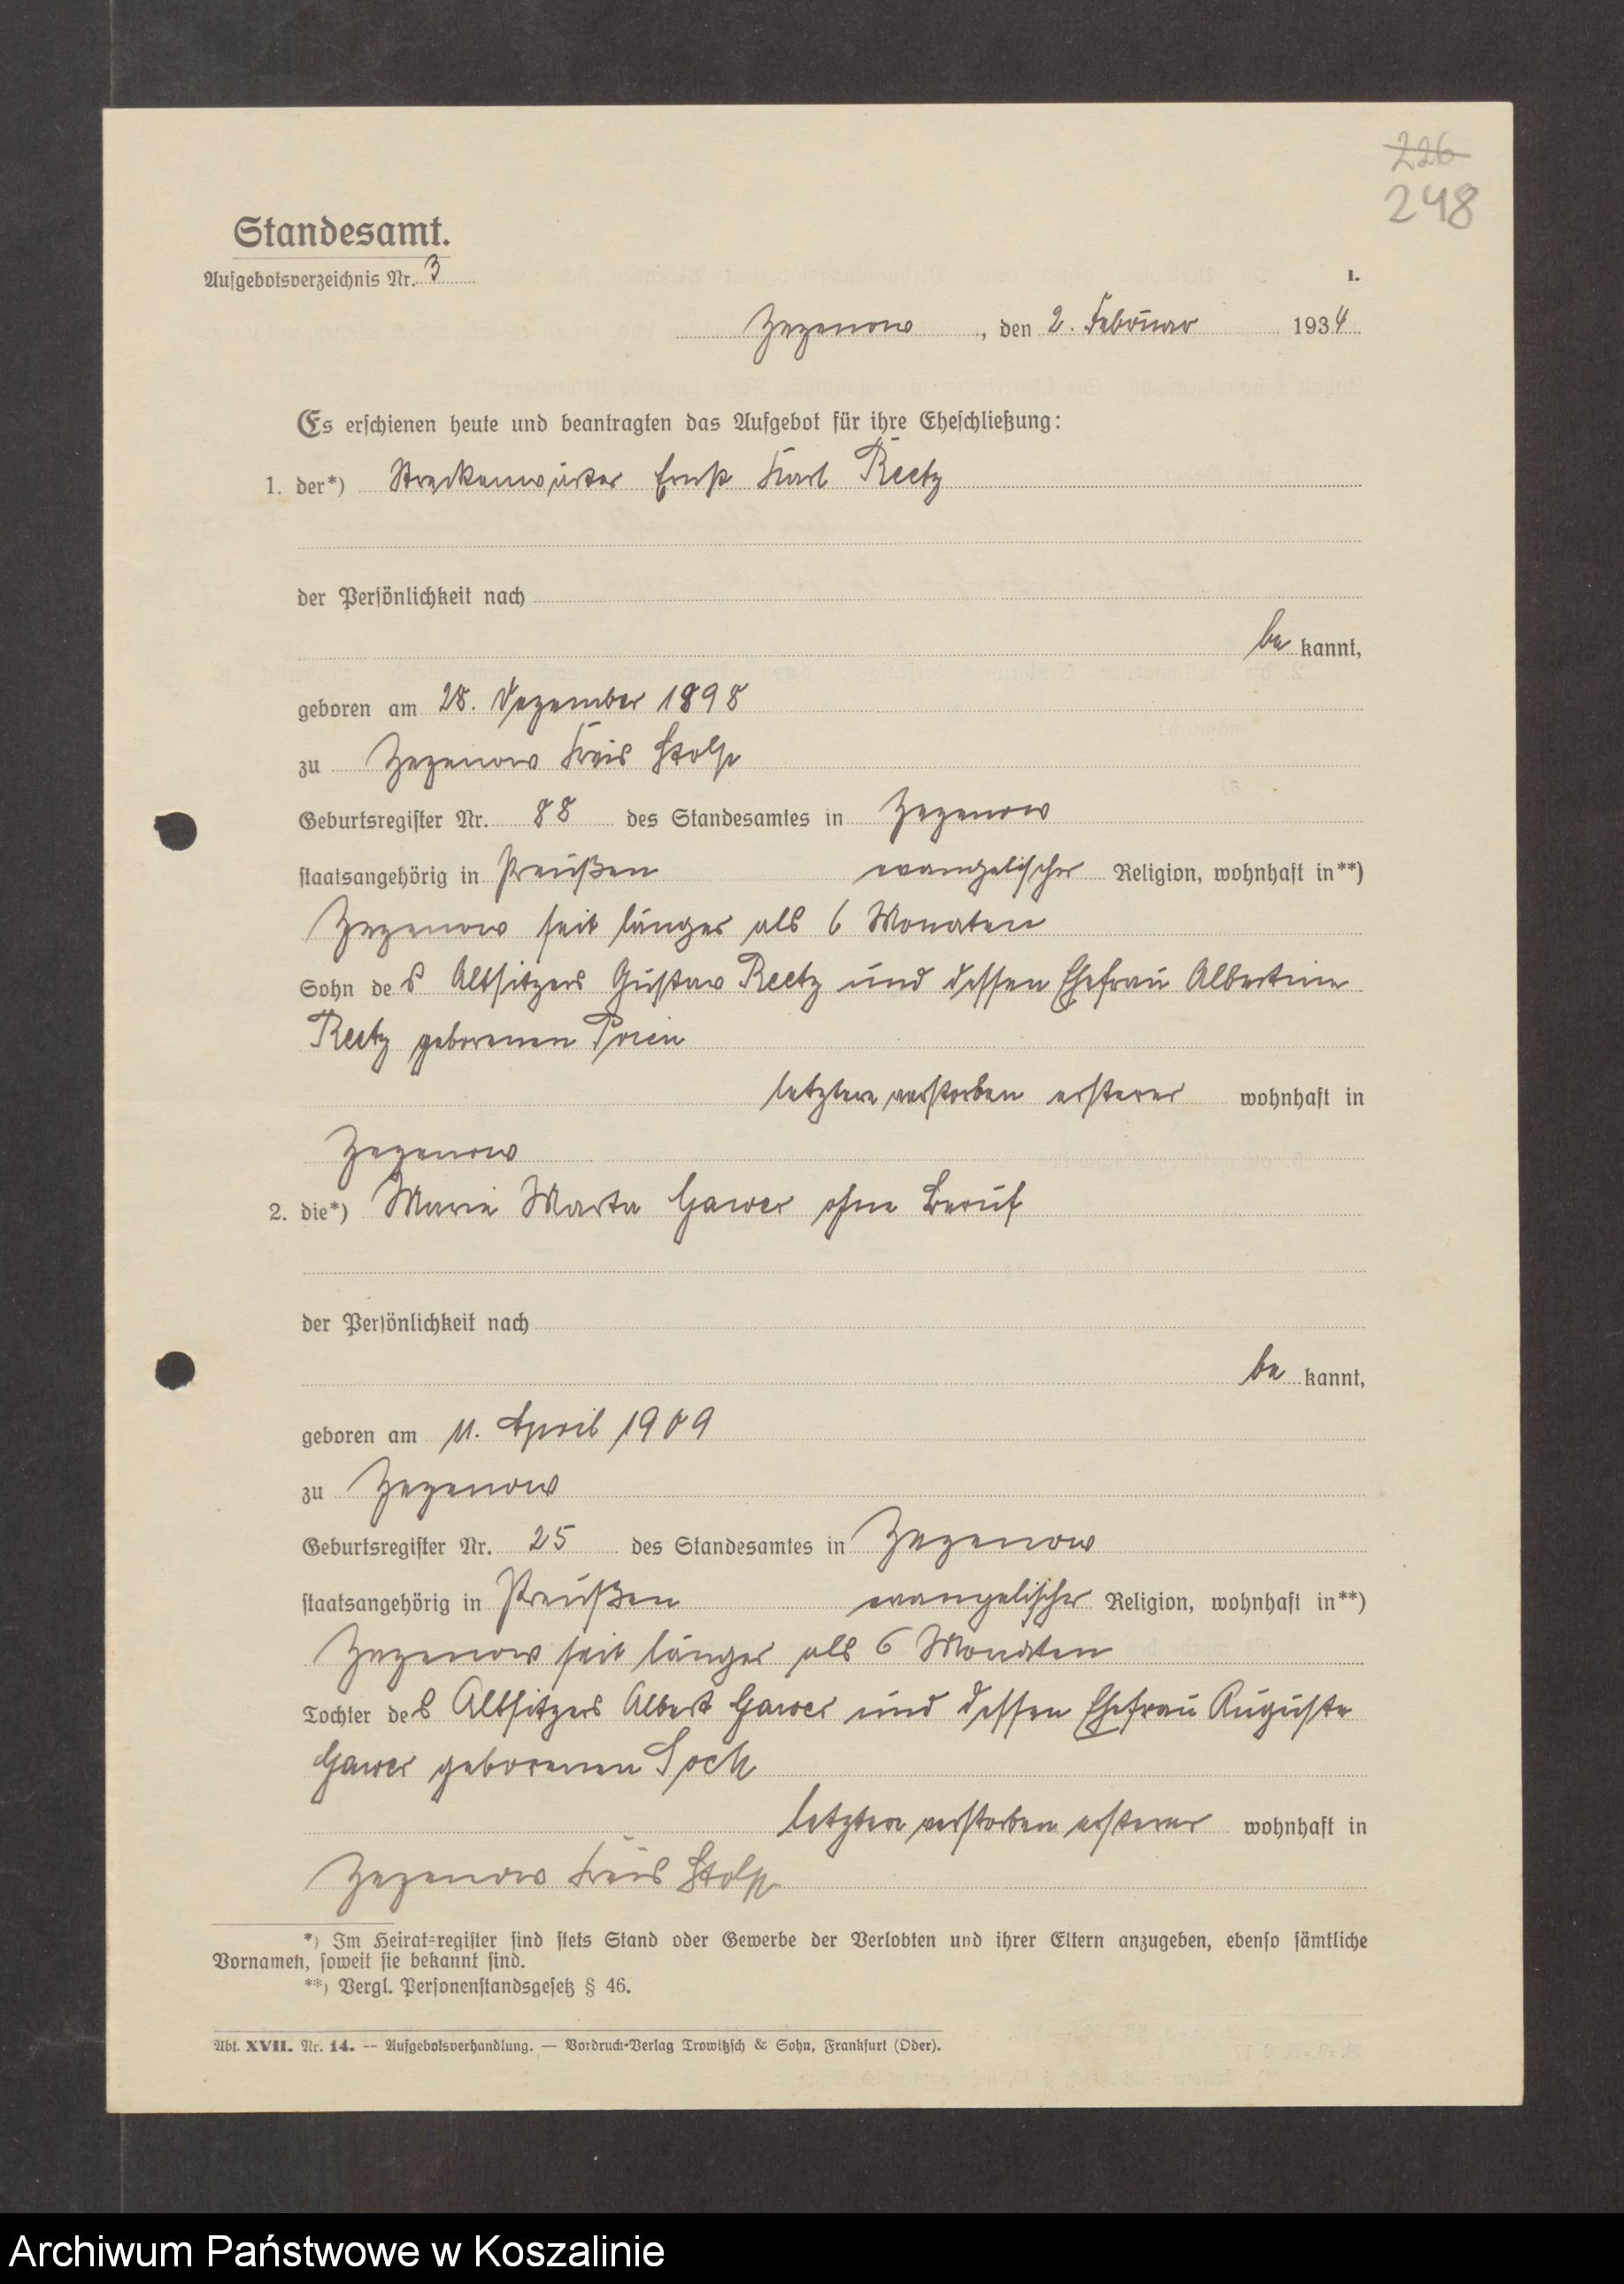 226
248
Standesamt.
Aufgebotsverzeichnis Nr. 3
1.
Zezenow, den 2. Februar 1934
Es erschienen heute und beantragten das Aufgebot für ihre Eheschließung:
1. der*) Streckenwärter Ernst Karl Reetz
der Persönlichkeit nach
be kannt,
geboren am 28. Dezember 1898
zu Zezenow Kreis Stolp
Geburtsregister Nr. 88 des Standesamtes in Zezenow
staatsangehörig in Preußen evangelischer Religion, wohnhaft in**)
Zezenow seit länger als 6 Monaten
Sohn des Altsitzers Gustav Reetz und dessen Ehefrau Albertine
Reetz geborenen
letztere verstorben ersterer wohnhaft in
Zezenow
2. die*) Marie Marta Gawer ohne Beruf
der Persönlichkeit nach
be kannt,
geboren am 11. April 1909
zu Zezenow
Geburtsregister Nr. 25 des Standesamtes in Zezenow
staatsangehörig in Preußen evangelischer Religion, wohnhaft in**)
Zezenow seit länger als 6 Monaten
Tochter des Altsitzers Albert Gawer und dessen Ehefrau Auguste
Gawer geborenen
letztere verstorben ersterer wohnhaft in
Zezenow Kreis Stolp
*) Im Heirat=register sind stets Stand oder Gewerbe der Verlobten und ihrer Eltern anzugeben, ebenso sämtliche
Vornamen, soweit sie bekannt sind.
**) Vergl. Personenstandsgesetz § 46.
Abt. XVII. Nr. 14. — Aufgebotsverhandlung. — Vordruck-Verlag Trowitzsch & Sohn, Frankfurt (Oder).
Archiwum Państwowe w Koszalinie